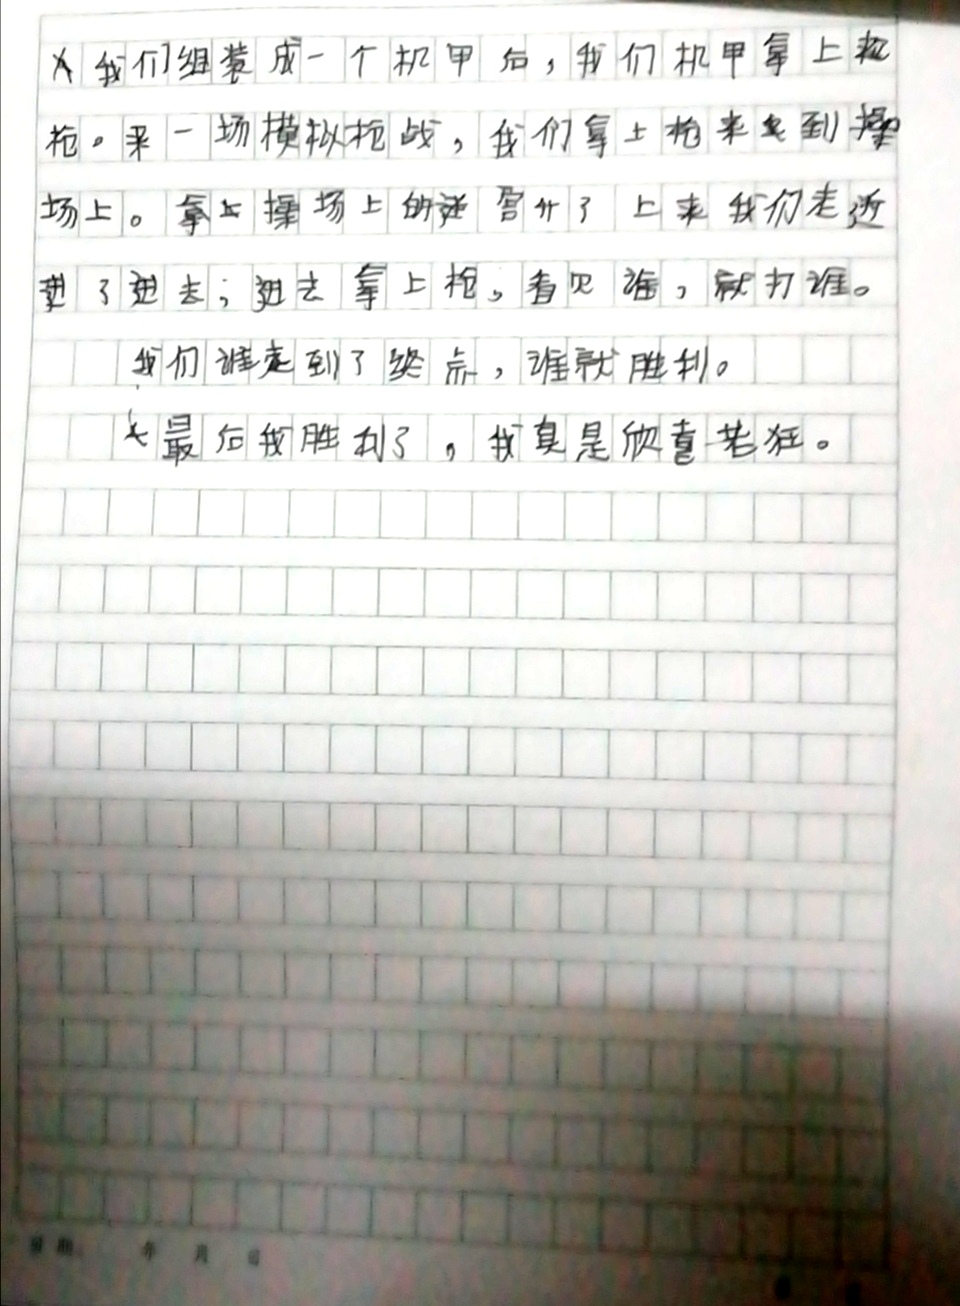 我们组装成一个机甲后，我们机甲拿上
枪。来一场模拟枪战，我们拿上枪来到操
场上。拿上操场上的迷宫升了上来我们走近
进了进去；进去拿上枪，看见谁，就打谁。
我们谁走到了终点，谁就胜利。
最后我胜利了，我真是欣喜若狂。
日期： 年 月 日